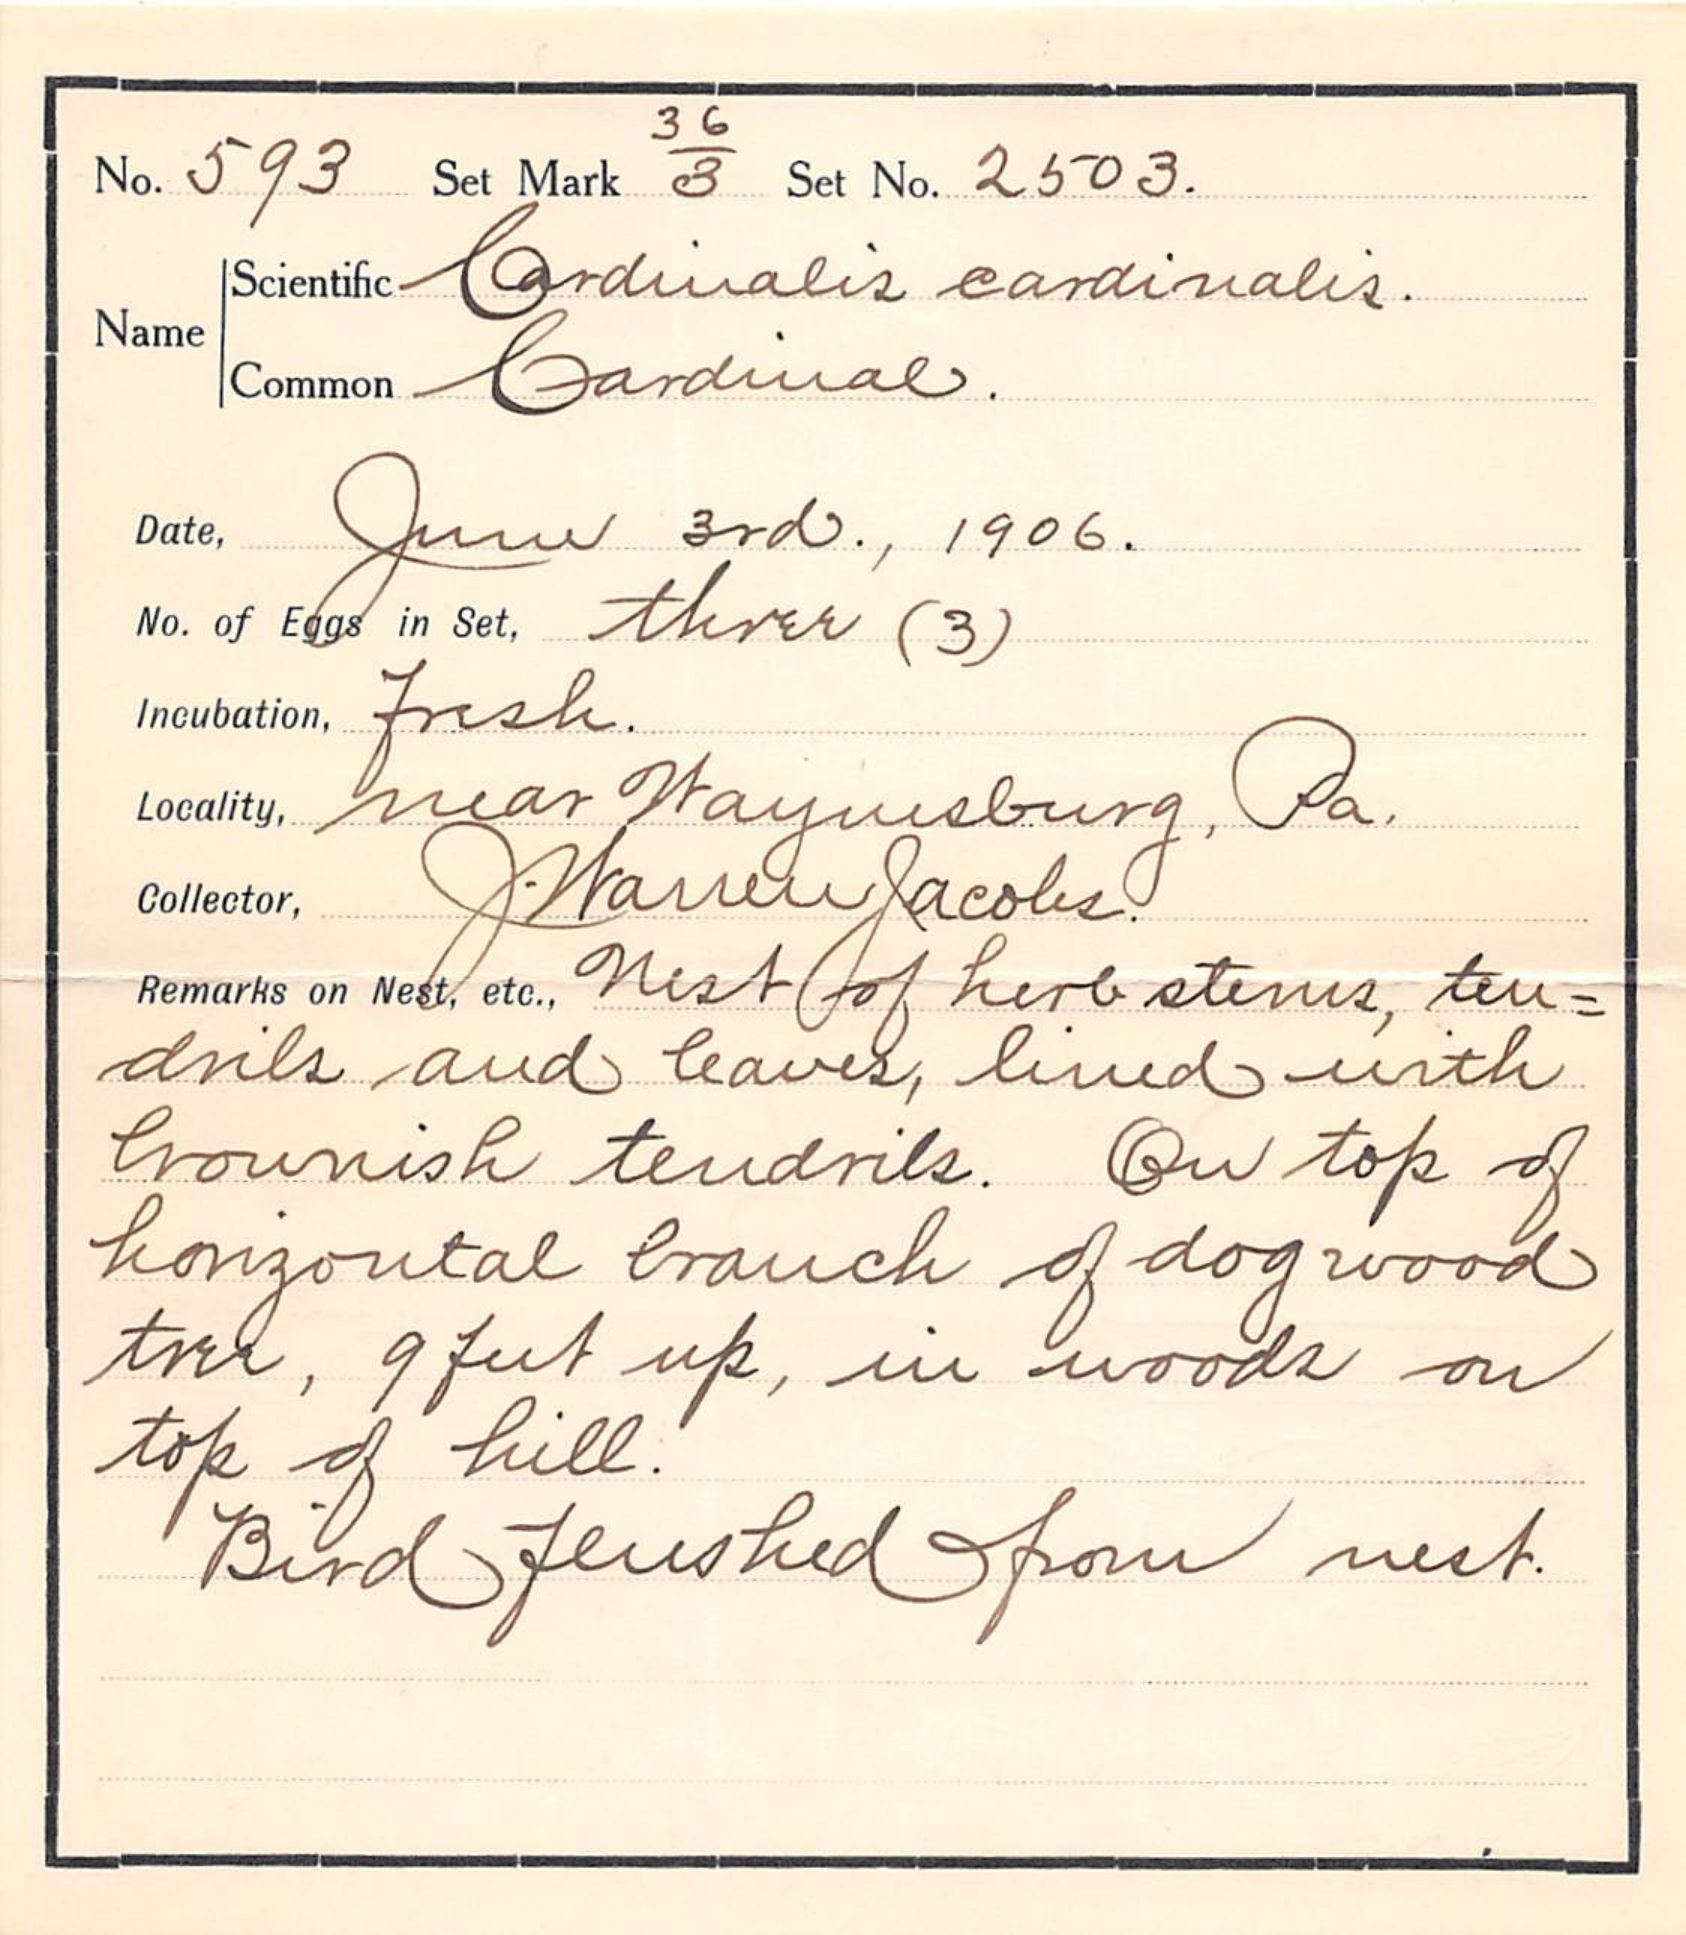 36
No. 593 Set Mark 3 Set No. 2503.
Scientific Cardinalis cardinalis.
Name
Common Cardinal.
Date, June 3rd., 1906.
No. of Eggs in Set, three (3)
Incubation, Fresh.
Locality, near Waynesburg, Pa.
Collector, J. Warren Jacobs.
Remarks on Nest, etc., Nest of herb stems, ten=
drils and leaves, lined with
brownish tendrils. On top of
horizontal branch of dogwood
tree, 9 feet up, in woods on
top of hill.
Bird flushed from nest.